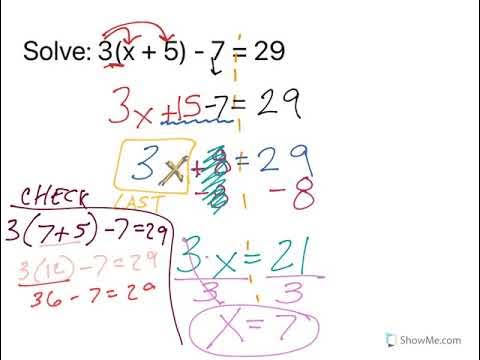 Solve: 3(x + 5) - 7 = 29
3x +15 -7 = 29
3x +8 = 29
-8 -8
LAST
3·x = 21
3 3
x = 7
CHECK
3(7+5) -7=29
3(12) -7=29
36 -7=29
ShowMe.com